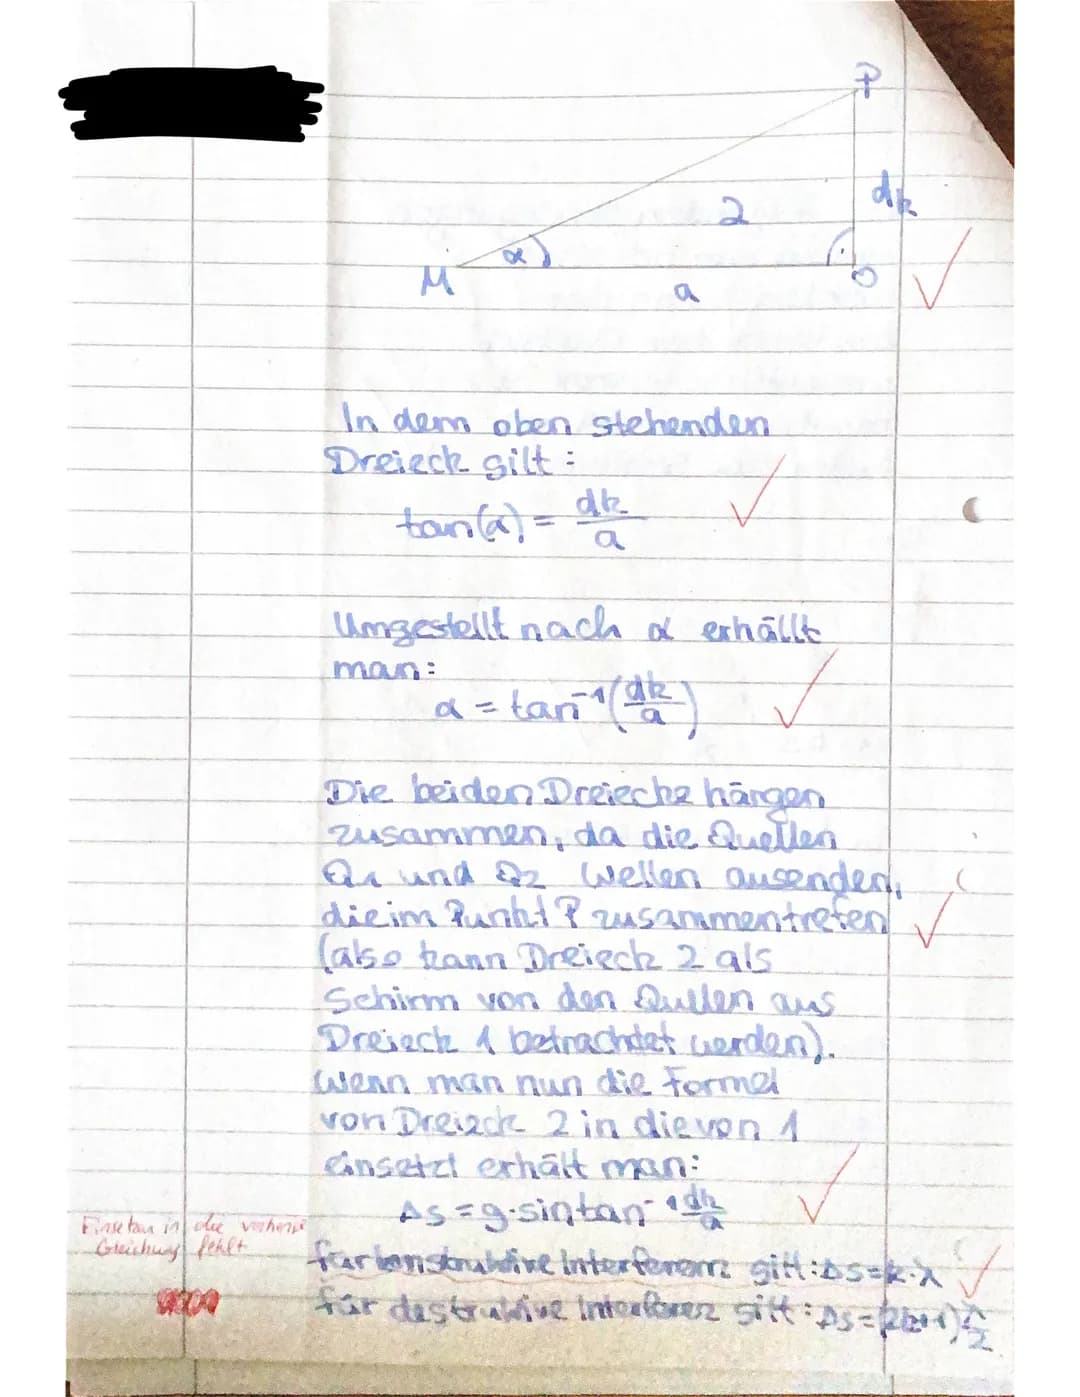 P
dk
2
α
M
a
0
In dem oben stehenden
Dreieck gilt:
tan(α) = dk/a
Umgestellt nach α erhällt
man:
α = tan⁻¹(dk/a)
Die beiden Dreiecke hängen
zusammen, da die Quellen
Q1 und Q2 Wellen aussenden,
die im Punkt P zusammentrefen
(also kann Dreieck 2 als
Schirm von den Qullen aus
Dreieck 1 betrachtet werden).
Wenn man nun die Formel
von Dreieck 2 in die von 1
einsetzt erhält man:
Δs = g·sin tan⁻¹ dk/a
Einsetzen in die
Gleichung fehlt
für konstruktive Interferenz gilt: Δs = k·λ
für destruktive Interferenz gilt: Δs = (2k+1) λ/2